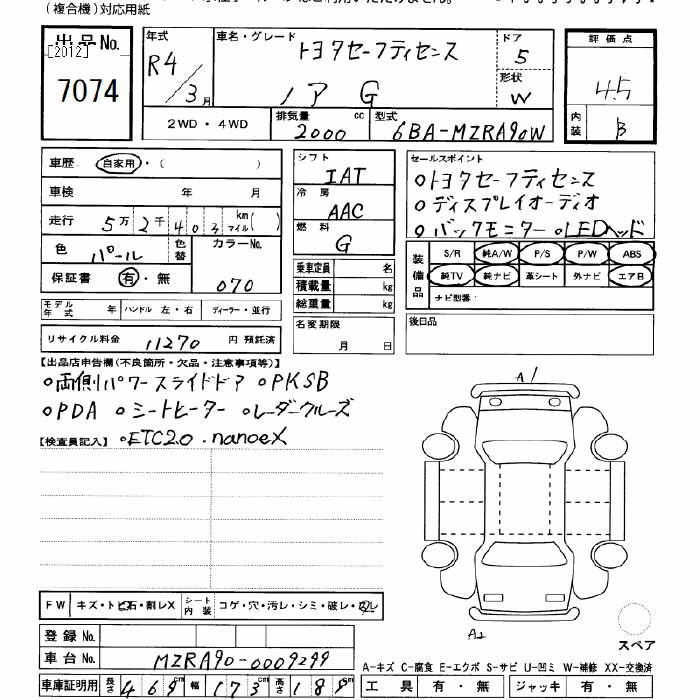 (複合機)対応用紙
出品No.
[2012]
7074
年式
R4/3月
車名・グレード
トヨタセーフティセンス
ノア G
ドア
5
形状
W
評価点
4.5
内装
B
2WD・4WD
排気量 2000 cc
型式 6BA-MZRA90W
車歴 自家用・( )
車検 年 月
走行 5万2千403 km マイル( )
色 パール 色替 カラーNo. 070
保証書 有・無
モデル年式 年 ハンドル 左・右 ディーラー・並行
リサイクル料金 11270 円 預託済
シフト
IAT
冷房
AAC
燃料
G
乗車定員 名
積載量 kg
総重量 kg
名変期限
月 日
セールスポイント
○トヨタセーフティセンス
○ディスプレイオーディオ
○バックモニター ○LEDヘッド
装備品
S/R 純A/W P/S P/W ABS
純TV 純ナビ 革シート 外ナビ エアB
ナビ型番:
後日品
【出品店申告欄(不良箇所・欠品・注意事項等)】
○両側パワースライドドア ○PKSB
○PDA ○シートヒーター ○レーダークルーズ
【検査員記入】 ○ETC2.0 ・nanoeX
A1
A2
スペア
FW キズ・トビ石・割レX シート内装 コゲ・穴・汚レ・シミ・破レ・スレ
登録No.
車台No. MZRA90-0009299
車庫証明用 長さ 469cm 幅 173cm 高さ 188cm
A-キズ C-腐食 E-エクボ S-サビ U-凹ミ W-補修 XX-交換済
工具 有・無 ジャッキ 有・無